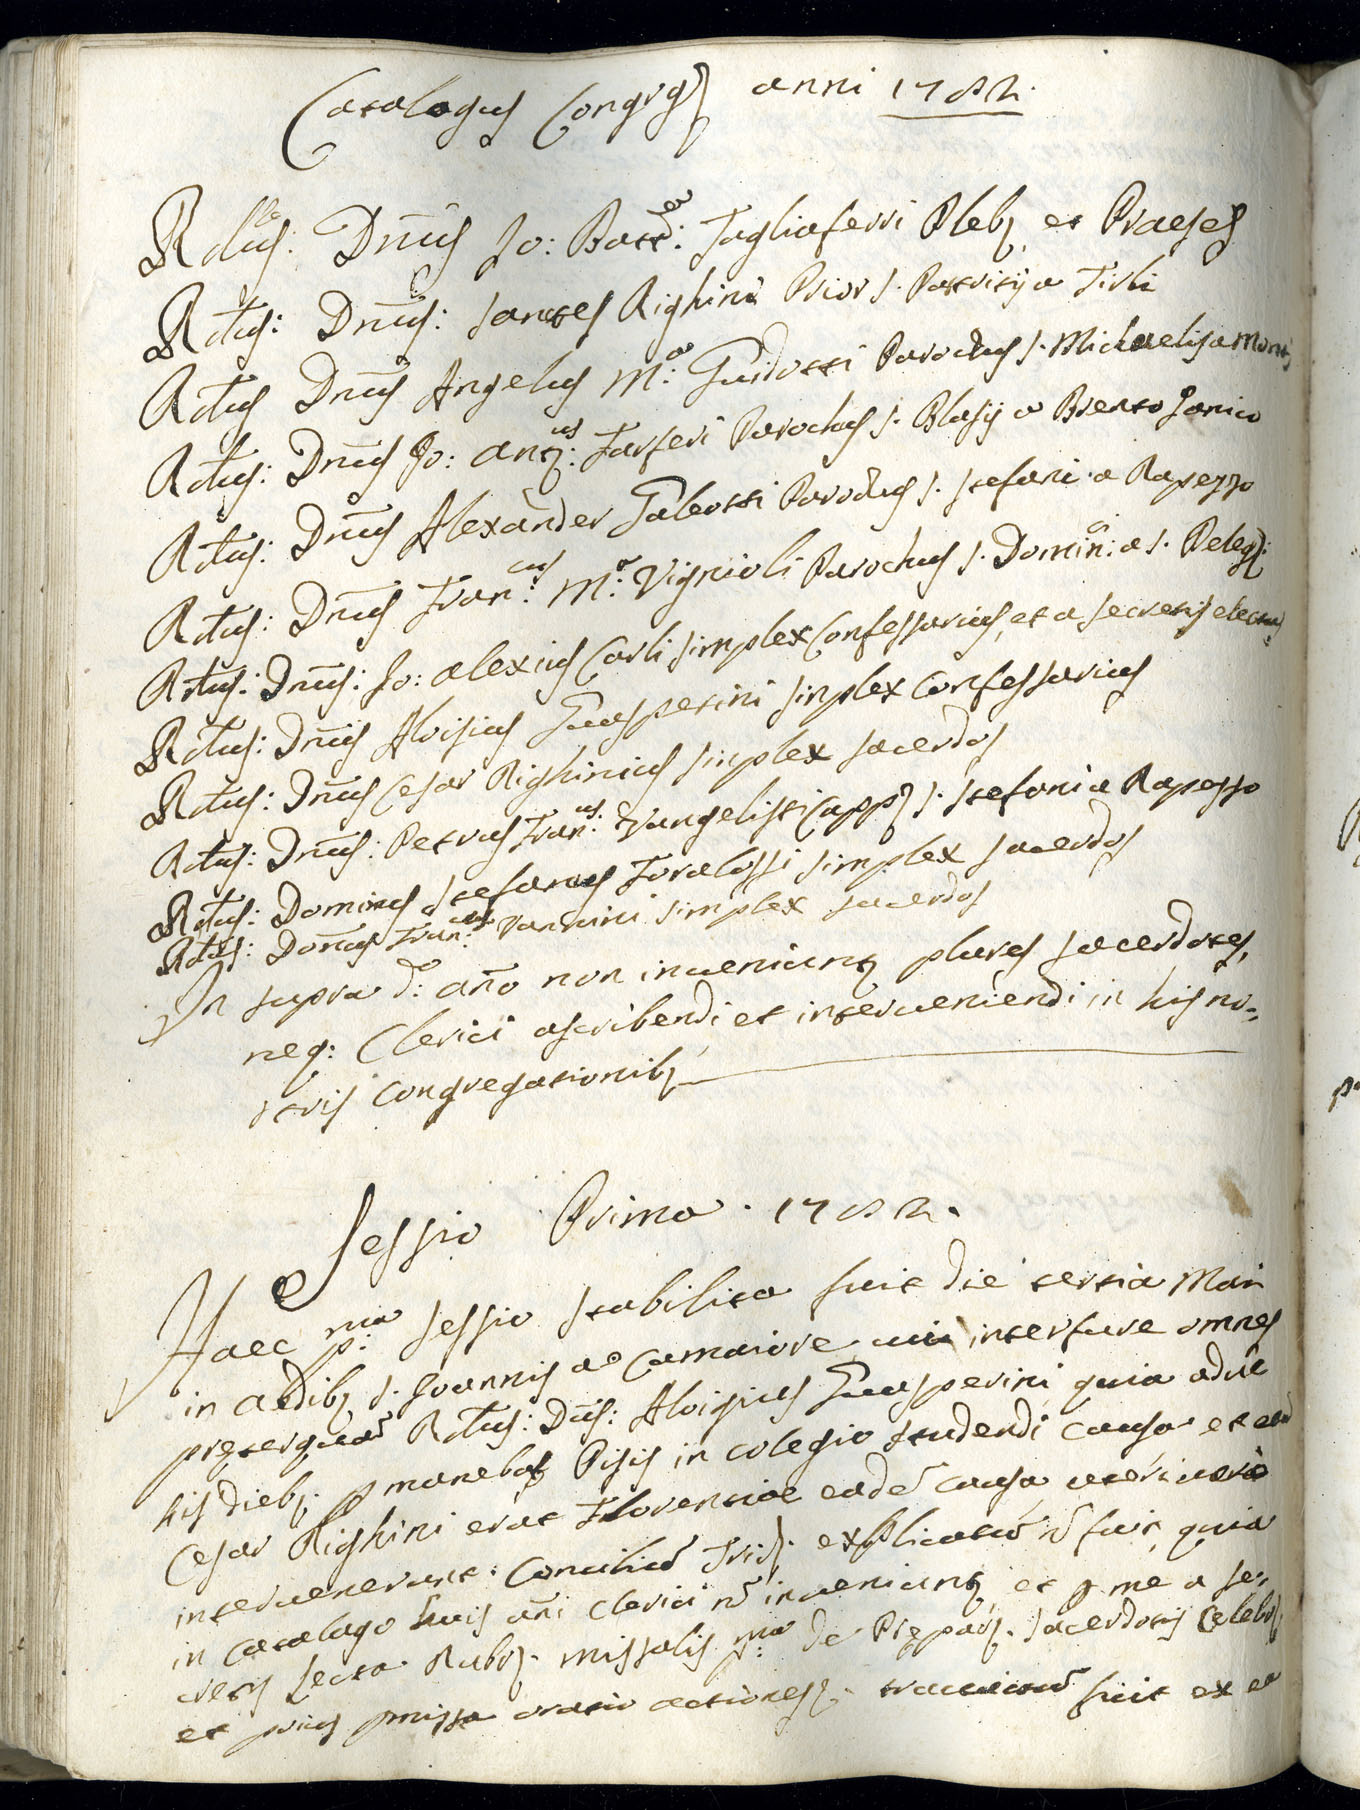 Catalogus Congrg. anni 1782.
R.dus: Dnus Jo: Batt.a: Tagliaferri Pleb. et Praeses
Rdus: Dnus: Santes Righini Prior S. Patritij a Tirli
Rdus Dnus Angelus M.a Guidotti Parochus S. Michaelis a Monti
Rdus: Dnus Jo: Ant.us: Tarferi Parochus S. Blasij a Brento Sanico
Rdus: Dnus Alexander Galeotti Parochus S. Stefani a Rapezzo
Rdus: Dnus Fran.cus: M.a: Vignioli Parochus S. Domin.ci: a S. Peleg.:
Rdus: Dnus: Jo: Alexius Carli simplex Confessarius, et a secretis electus
Rdus: Dnus Aloisius Guasperini sinplex Confessarius
Rdus: Dnus Cesar Righinius sinplex sacerdos
Rdus: Dnus: Petrus Fran.us: Vangelisti Capp. S. Stefani a Rapezzo
Rdus: Dominus Stefanus Foralossi simplex sacerdos
Rdus: Domus Fran.cus: Vannini simplex sacerdos
In supra d.o: ano non inveniunt. plures sacerdotes,
neq: Clerici ascribendi et interveniendi in his no-
stris Congregationib.
Sessio Prima. 1782.
Haec p.ma: sessio stabilita fuit die tertia Maii
in aedib. S. Joannis a Camaiore cui interfure omnes
preterquã Rdus: Dnus: Aloisius Guasperini quia aduc
his dieb. pmanebat Pisis in colegio studendi causa et
Cesar Righini erat Florentiae eadẽ causa
intervenerunt. Conciliũ Trid. explicatũ nõ fuit, quia
in Catalago huis ãni Clerici nõ inveniunt. et p me a se-
cretis Lecta Rubr. missalis p.ma: de Prẹpar. sacerdotis Celebr.
et prius pmissa oratio actiones. tractatũ fuit ex